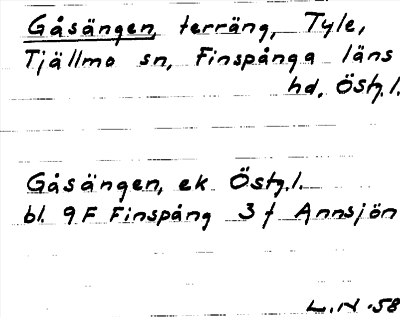 Gåsängen, terräng, Tyle,
Tjällmo sn, Finspånga läns
hd, Östg.l.
Gåsängen, ek Östg.l.
bl. 9F Finspång 3f Annsjön
L.N -58